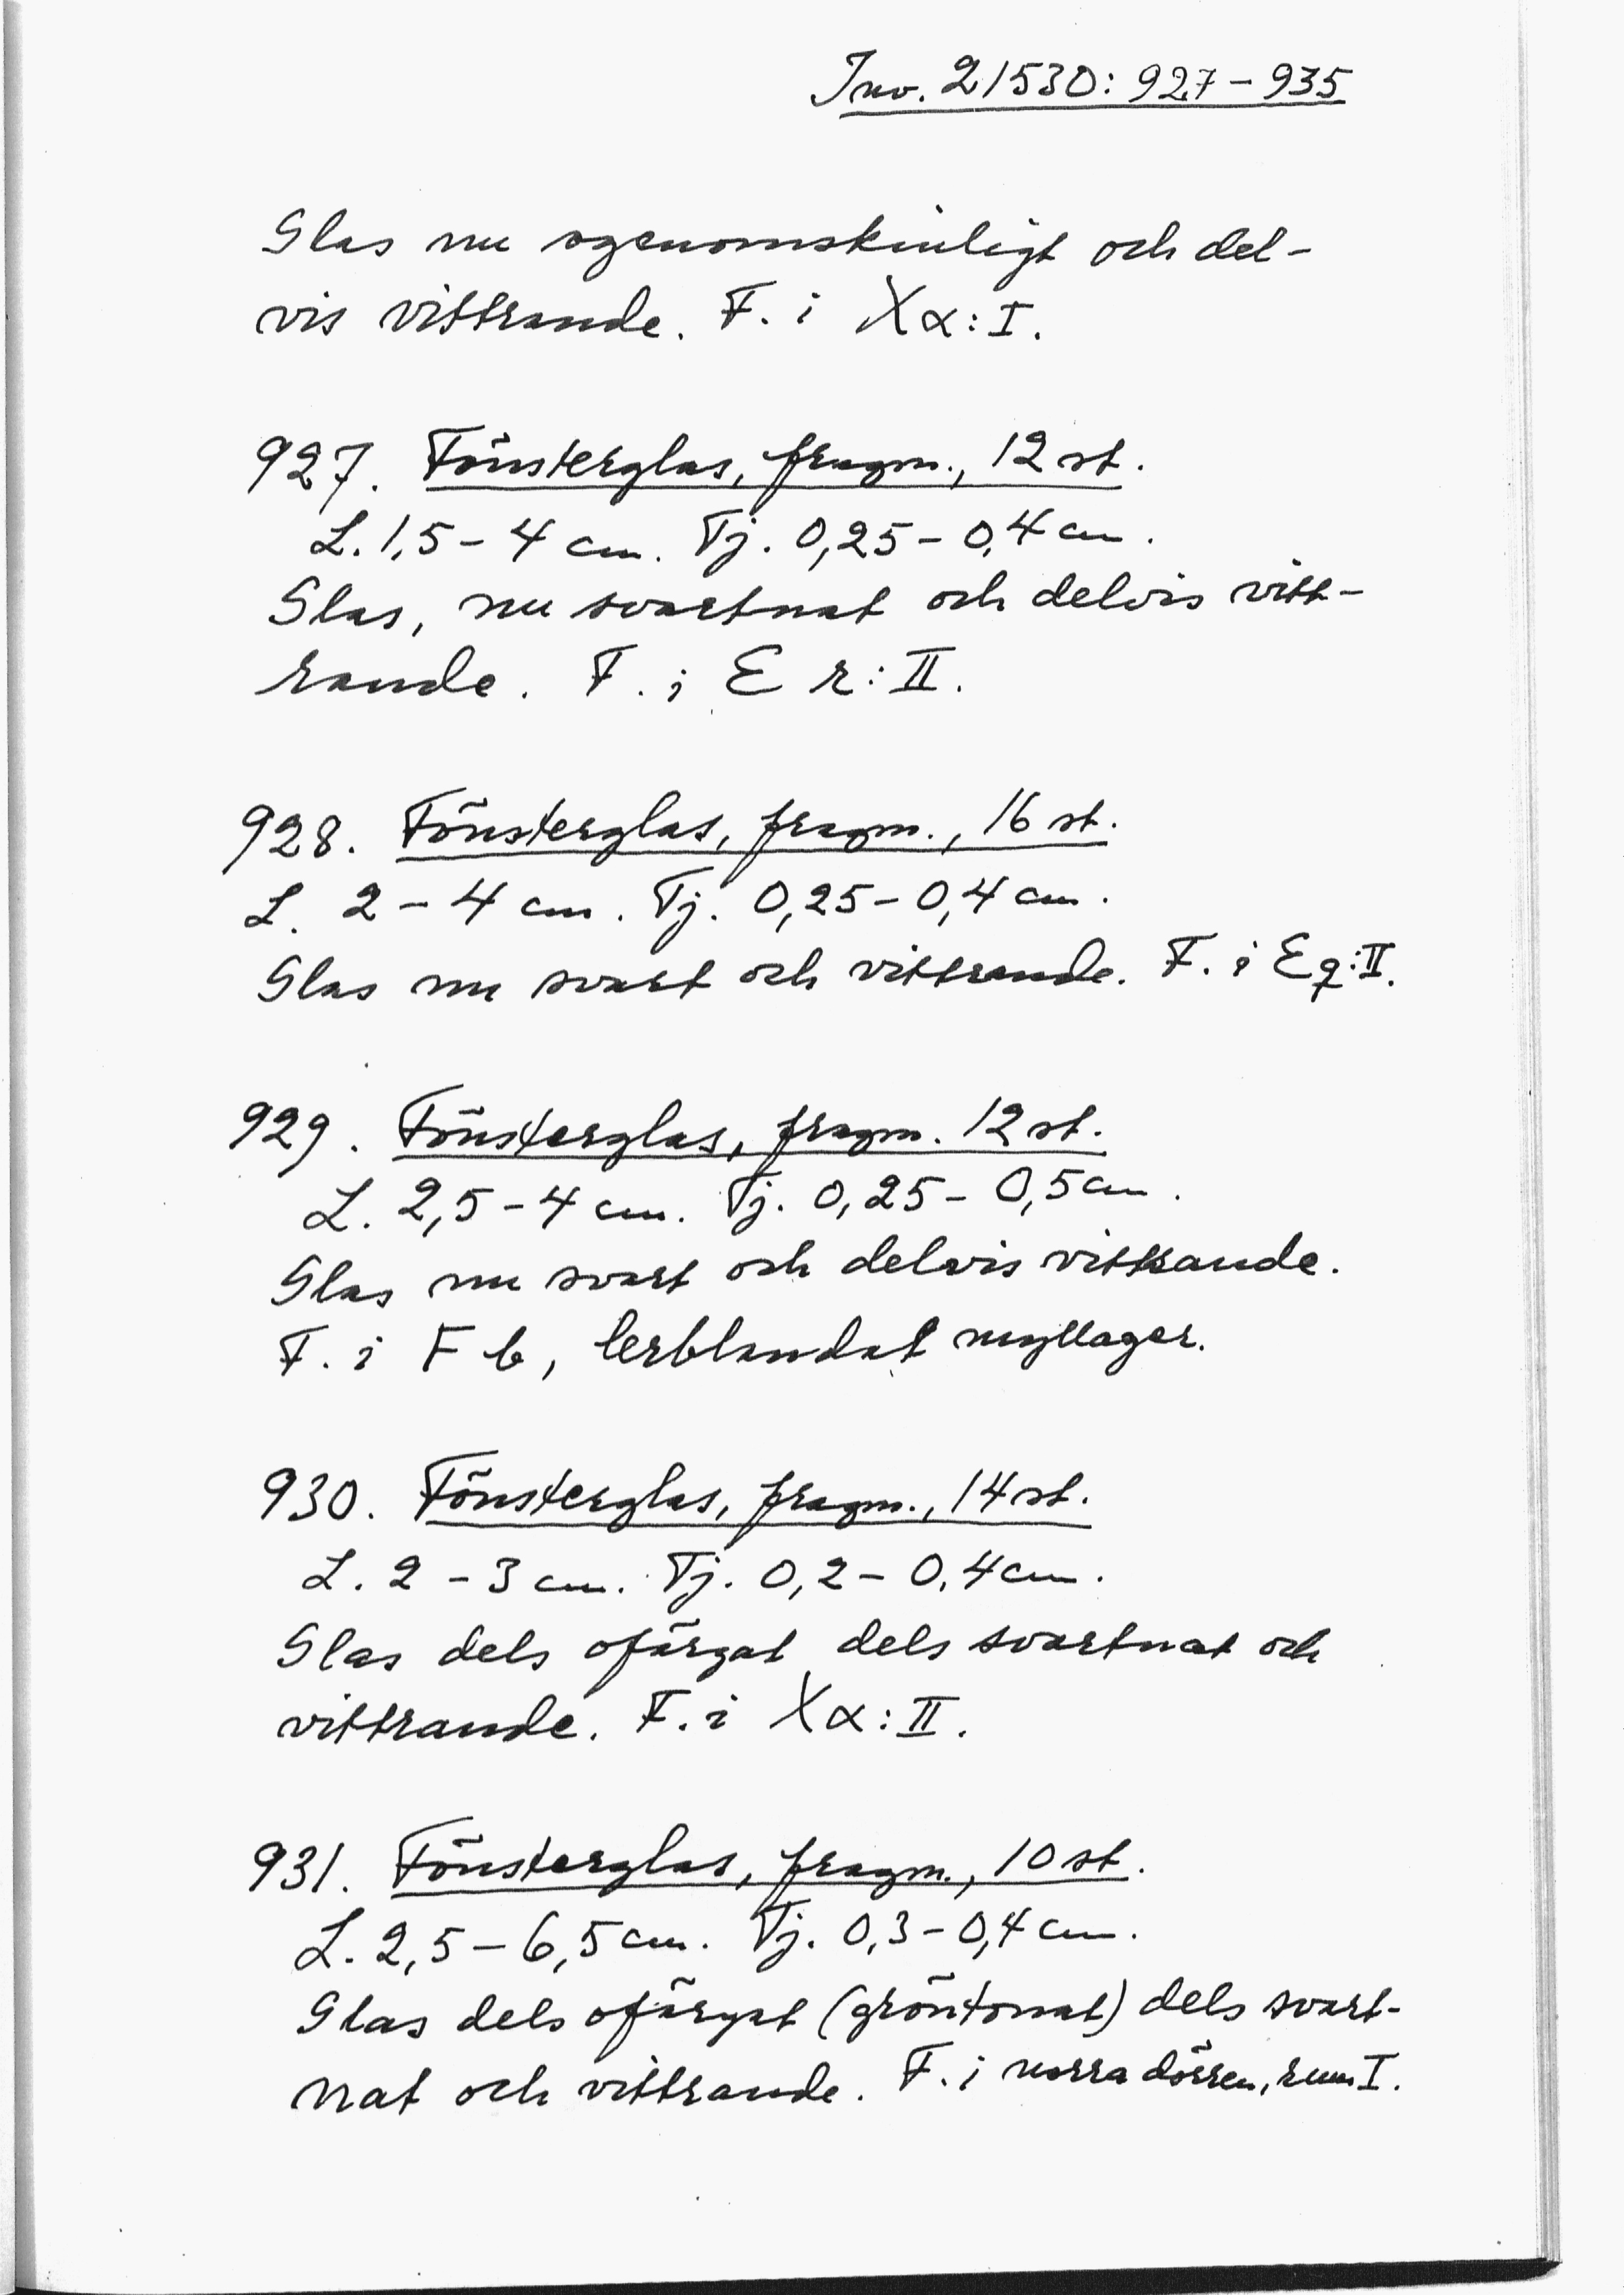 Inv. 21530: 927-935
Glas nu ogenomskinligt och del-
vis vittrande. F. i Xα:I.
927. Fönsterglas, fragm., 12 st.
L. 1,5-4 cm. Tj. 0,25-0,4 cm.
Glas, nu svartnat och delvis vitt-
rande. F. i E r:II.
928. Fönsterglas, fragm., 16 st.
L. 2-4 cm. Tj. 0,25-0,4 cm.
Glas nu svart och vittrande. F. i Eq:II.
929. Fönsterglas, fragm. 12 st.
L. 2,5-4 cm. Tj. 0,25-0,5 cm.
Glas nu svart och delvis vittrande.
F. i F b, lerblandat myllager.
930. Fönsterglas, fragm., 14 st.
L. 2-3 cm. Tj. 0,2-0,4 cm.
Glas dels ofärgat dels svartnat och
vittrande. F. i Xα:II.
931. Fönsterglas, fragm., 10 st.
L. 2,5-6,5 cm. Tj. 0,3-0,4 cm.
Glas dels ofärgat (gröntonat) dels svart-
nat och vittrande. F. i norra dörren, rum I.